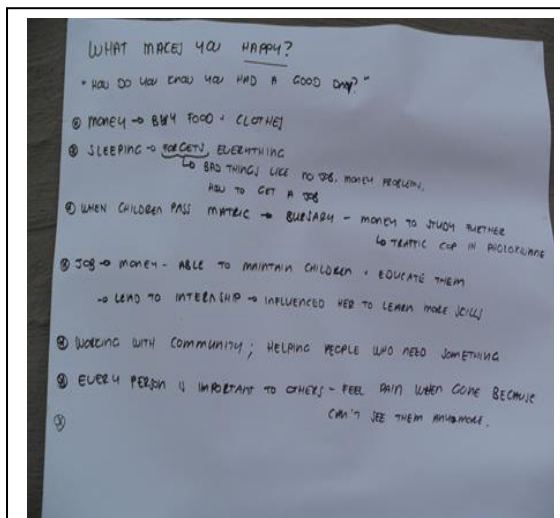 WHAT MAKES YOU HAPPY?
"HOW DO YOU KNOW YOU HAD A GOOD DAY?"
MONEY → BUY FOOD + CLOTHES
SLEEPING → FORGETS EVERYTHING
↳ BAD THINGS LIKE NO JOB, MONEY PROBLEMS,
HOW TO GET A JOB
WHEN CHILDREN PASS MATRIC → BURSARY - MONEY TO STUDY FURTHER
↳ TRAFFIC COP IN POLOKWANE
JOB → MONEY - ABLE TO MAINTAIN CHILDREN + EDUCATE THEM
→ LEAD TO INTERNSHIP → INFLUENCED HER TO LEARN MORE SKILLS
WORKING WITH COMMUNITY; HELPING PEOPLE WHO NEED SOMETHING
EVERY PERSON IS IMPORTANT TO OTHERS - FEEL PAIN WHEN GONE BECAUSE
CAN'T SEE THEM ANYMORE.